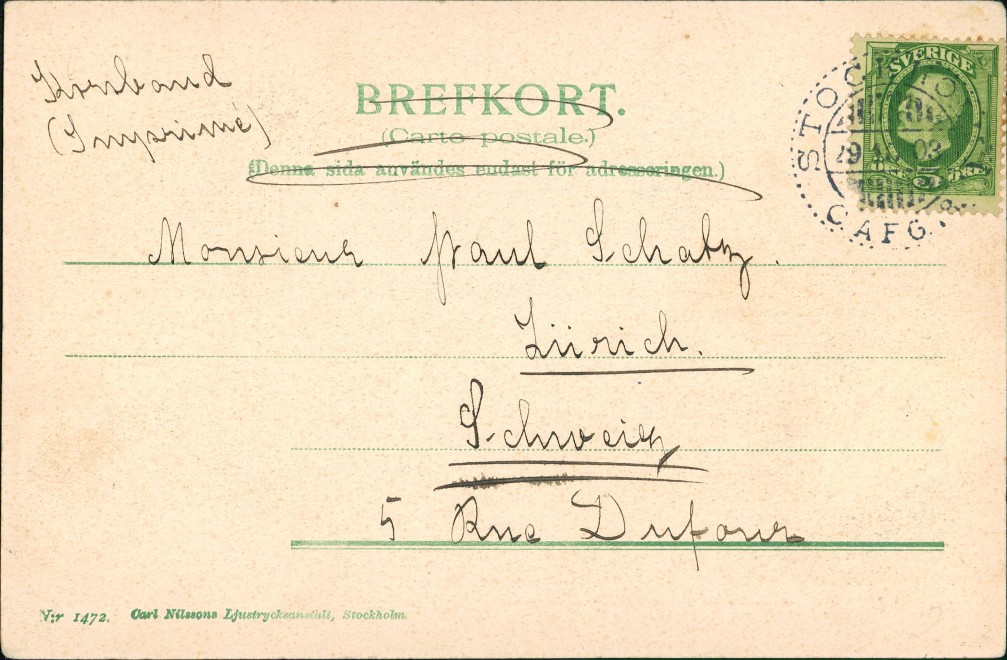 Korsband
(Imprimé)
BREFKORT.
(Carte postale.)
(Denna sida användes endast för adresseringen.)
SVERIGE
5
STOCKHO
29 03
C AFG.
Monsieur Paul Schatz.
Zürich.
Schweiz
5 Rue Dufour
N:r 1472. Carl Nilssons Ljustrycksanstalt, Stockholm.